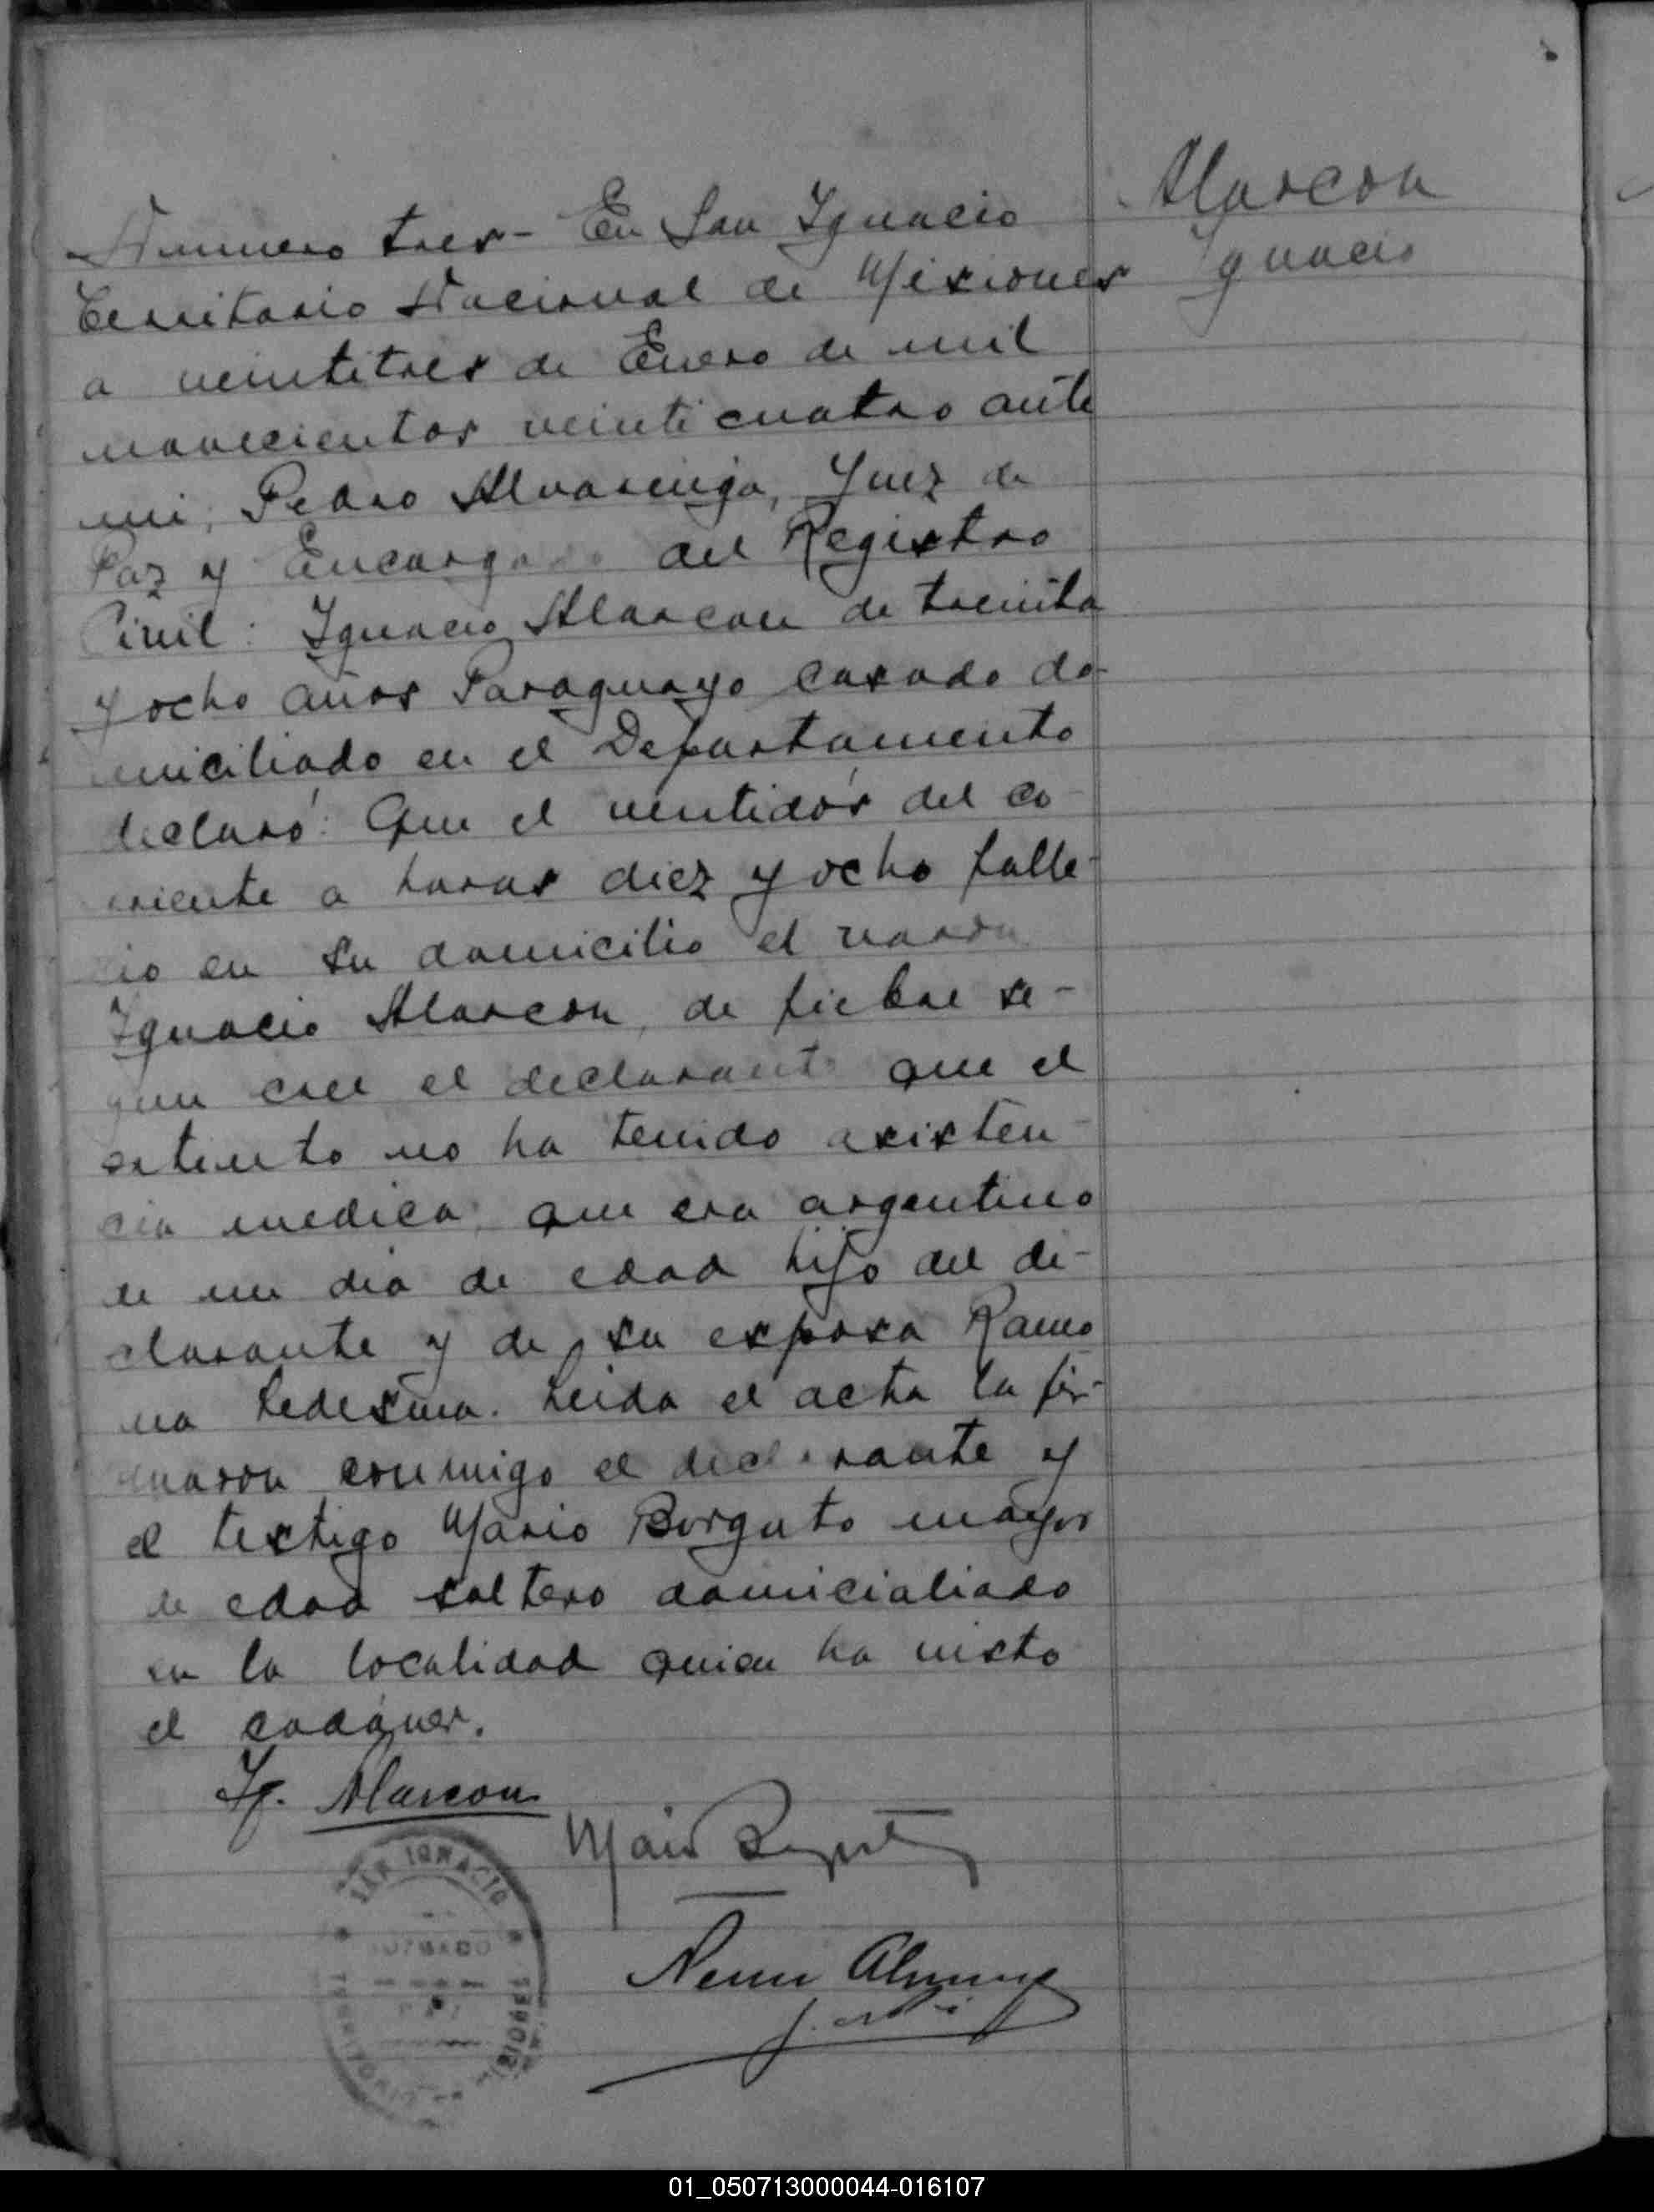 Alarcon
Ignacio
Numero tres - En San Ignacio
Territorio Nacional de Misiones
a veintitres de Enero de mil
novecientos veinticuatro ante
mi, Pedro Alvarenga, Juez de
Paz y Encargado del Registro
Civil: Ignacio Alarcon de treinta
y ocho años Paraguayo casado do-
miciliado en el Departamento
declaró: Que el ventidós del co-
rriente a horas diez y ocho falle-
cio en su domicilio el varon
Ignacio Alarcon, de fiebre se-
gun cree el declarante que el
extinto no ha tenido asisten-
cia medica, que era argentino
de un dia de edad hijo del de-
clarante y de su esposa Ramo
na Ledesma. Leida el acta la fir-
maron conmigo el declarante y
el testigo Mario Borgato mayor
de edad soltero domicialiado
en la localidad quien ha visto
el cadáver.
Ig. Alarcon
SAN IGNACIO
JUZGADO
TERRITORIO MISIONES
01_050713000044-016107